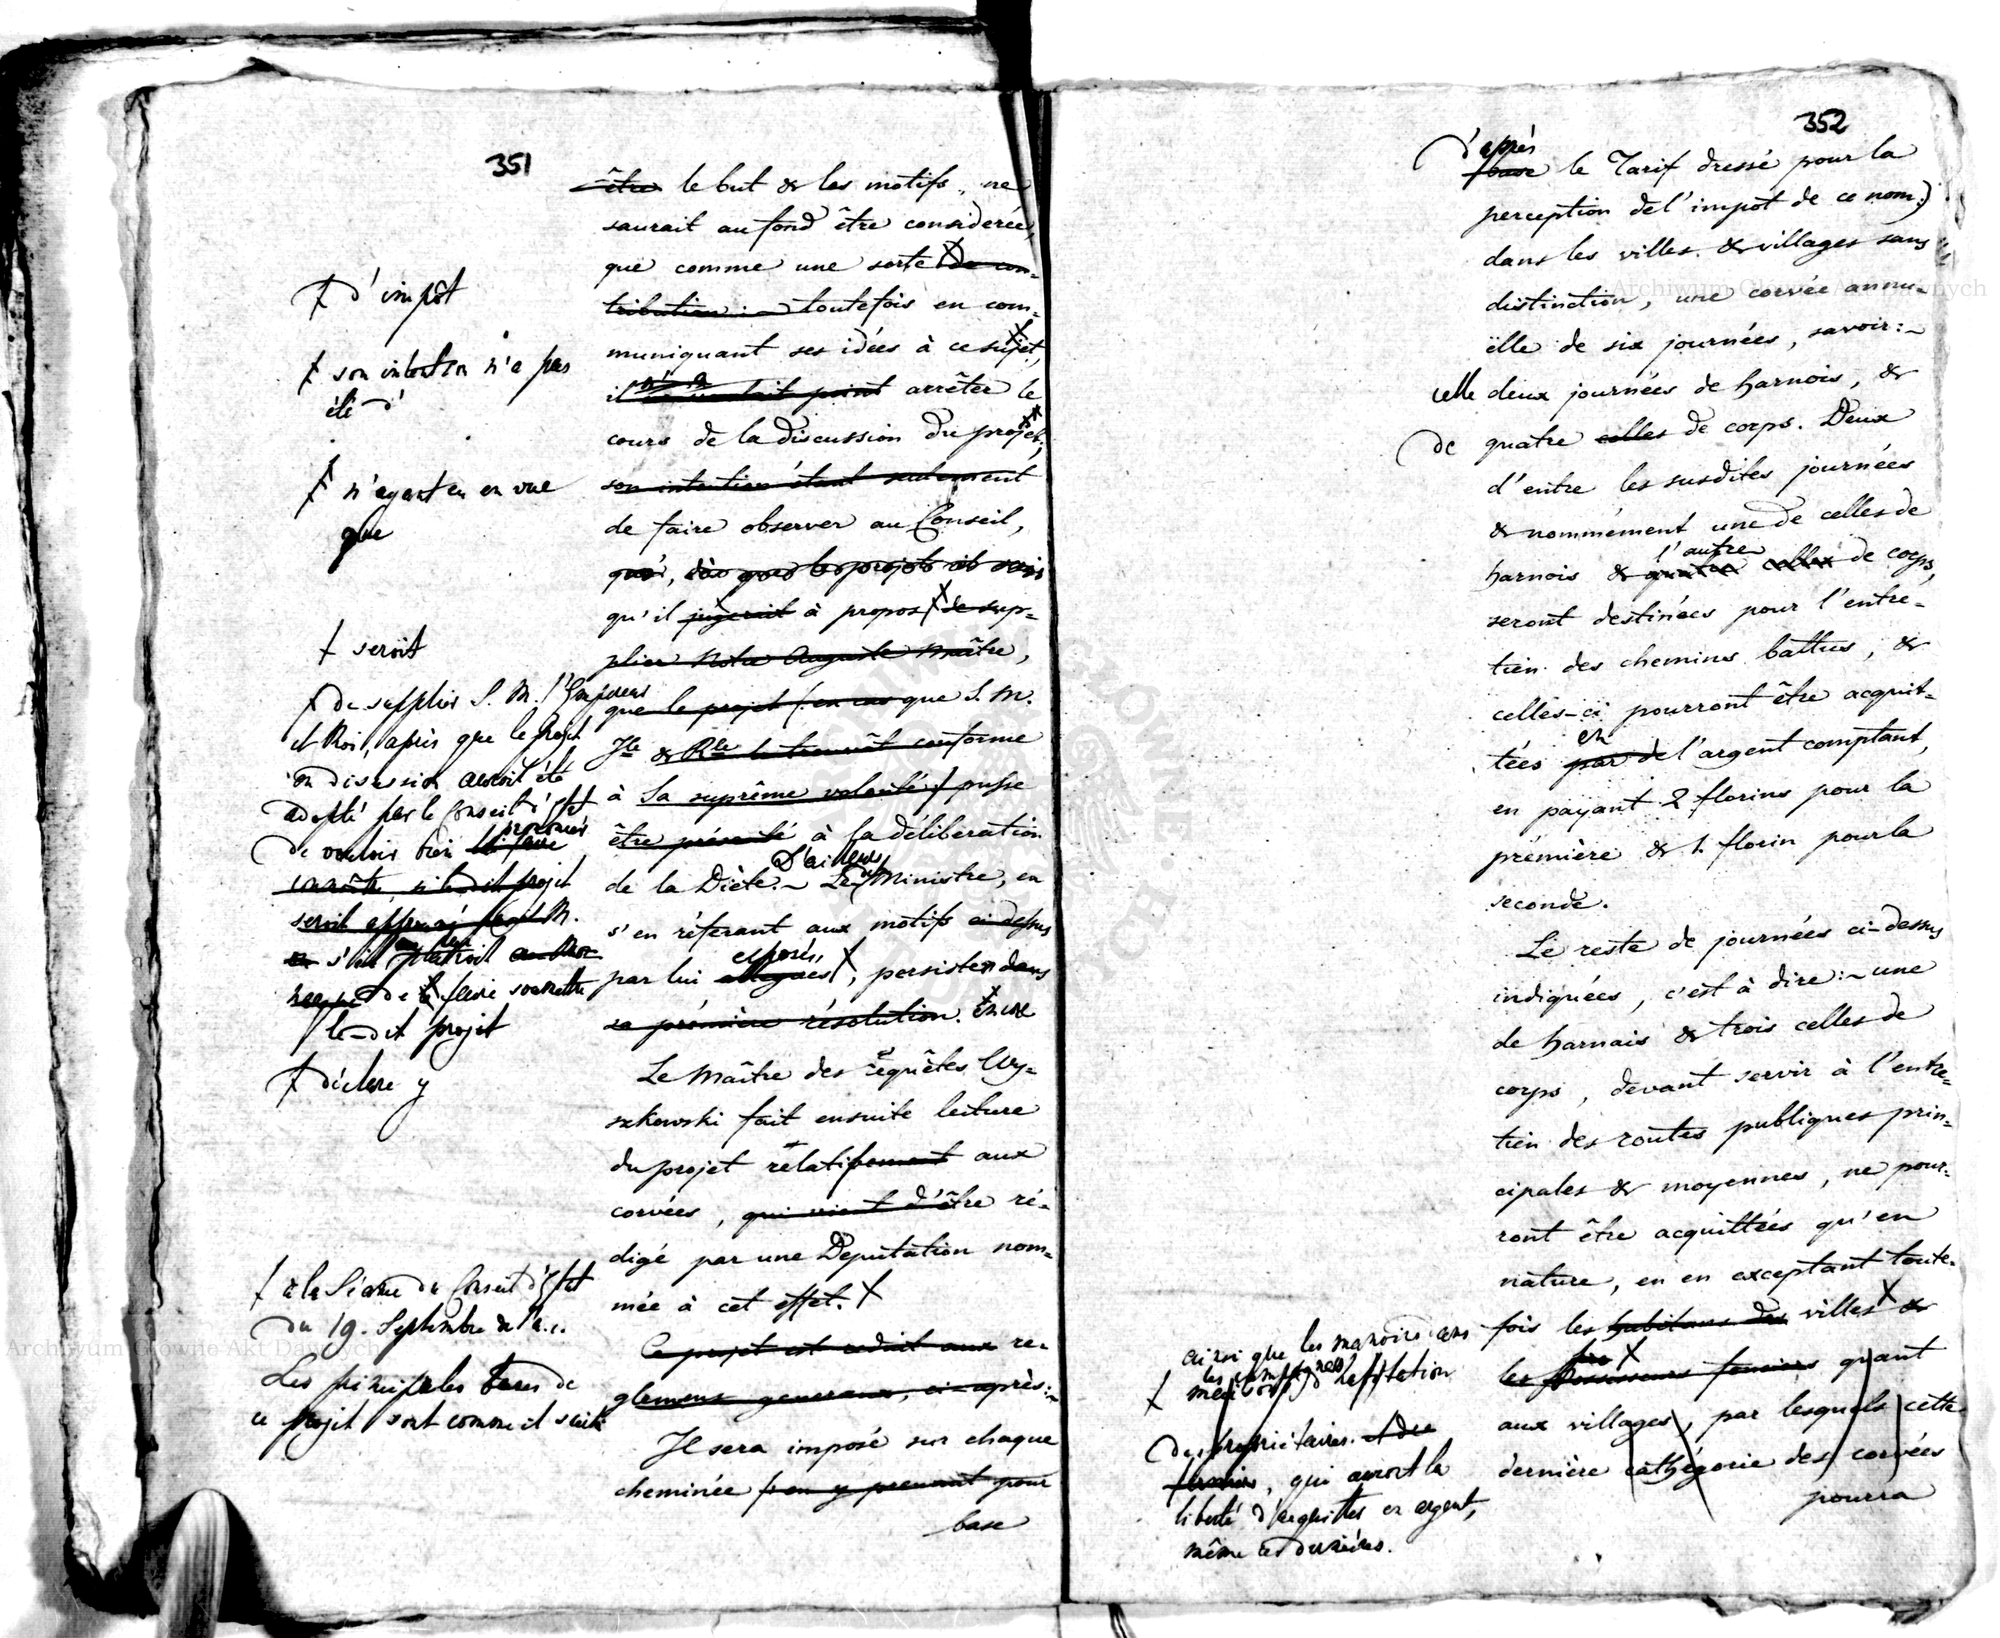 351
être le but & les motifs, ne
saurait au fond être considerée,
que comme une sorte de con-
tribution :~ toutefois en com-
muniquant ses idées à ce sujet,
il n'a voulait point arrêter le
cours de la discussion du projet,
son intention étant seulement
de faire observer au Conseil,
que, dès que le projet
qu'il jugerait à propos de sup-
plier Notre Auguste Maître,
que le projet (en cas que S. M.
Jle & Rle le trouvât conforme
à Sa suprême volonté) pusse
être présenté à la déliberation
de la Diète.~ D'ailleurs Le Ministre, en
s'en réferant aux motifs ci-dessus
exposés,
par lui allegués, persiste dans
sa prémière résolution. encore
Le Maître des requêtes Wy-
szkowski fait ensuite lecture
du projet relativement aux
corvées, qui vient d'être ré-
digé par une Deputation nom-
mée à cet effet.
Ce projet est reduit aux re-
glemens generaux, ci-après:~
Il sera imposé sur chaque
cheminée (en y prenant pour
base
d'impôt
son intention n'a pas
été d'
n'ayant eu en vue
que
seroit
de supplier S. M. l'Empereur
et Roi, après que le projet
en discussion auroit été
adopté par le Conseil d'Etat
de vouloir bien
connoître, si le dit projet
seroit
s'il
de faire soumettre
le-dit projet
déclare y
à la Séance du Conseil d'Etat
du 19. Septembre de l'a. c.
Les principales bases de
ce projet sont comme il suit
352
d'après
base le Tarif dressé pour la
perception de l'impot de ce nom)
dans les villes & villages sans
distinction, une corvée annu-
ëlle de six journées, savoir:~
celle deux journées de harnois, &
de quatre celles de corps. Deux
d'entre les susdites journées
& nommément une de celles de
l'autre
harnois & quatre celles de corps,
seront destinées pour l'entre-
tien des chemins battus, &
celles-ci pourront être acquit-
en
tées par de l'argent comptant,
en payant 2 florins pour la
prémière & 1. florin pour la
seconde.
Le reste de journées ci-dessus
indiquées, c'est à dire:~ une
de harnais & trois celles de
corps, devant servir à l'entre-
tien des routes publiques prin-
cipales & moyennes, ne pour-
ront être acquittées qu'en
nature, en en exceptant toute-
fois les habitans des villes &
les possesseurs fonciers quant
aux villages, par lesquels cette
dernière cathégorie des corvées
pourra
ainsi que les manoirs
d'habitation
des propriétaires.
qui auront la
liberté d'acquitter en argent,
même ces dernières.